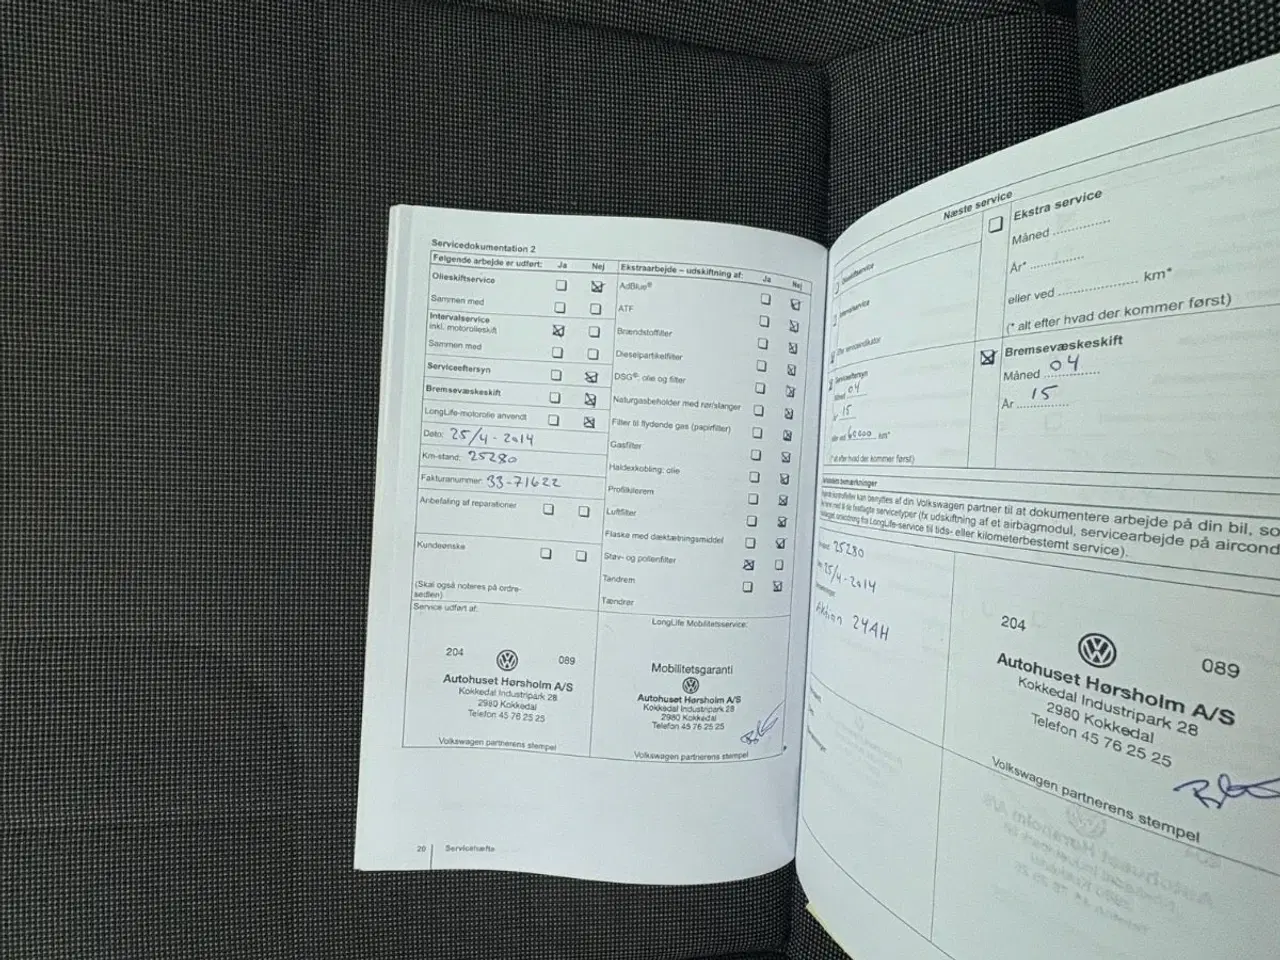 Servicedokumentation 2
Følgende arbejde er udført: Ja Nej
Olieskiftservice
Sammen med
Intervalservice
inkl. motorolieskift
Sammen med
Serviceeftersyn
Bremsevæskeskift
LongLife-motorolie anvendt
Dato: 25/4-2014
Km-stand: 25280
Fakturanummer: 33-71622
Anbefaling af reparationer
Kundeønske
(Skal også noteres på ordre-
sedlen)
Service udført af:
204 089
Autohuset Hørsholm A/S
Kokkedal Industripark 28
2980 Kokkedal
Telefon 45 76 25 25
Volkswagen partnerens stempel
Ekstraarbejde – udskiftning af: Ja Nej
AdBlue®
ATF
Brændstoffilter
Dieselpartikelfilter
DSG®: olie og filter
Naturgasbeholder med rør/slanger
Filter til flydende gas (papirfilter)
Gasfilter
Haldexkobling: olie
Profilkilerem
Luftfilter
Flaske med dæktætningsmiddel
Støv- og pollenfilter
Tandrem
Tændrør
LongLife Mobilitetsservice:
Mobilitetsgaranti
Autohuset Hørsholm A/S
Kokkedal Industripark 28
2980 Kokkedal
Telefon 45 76 25 25
Volkswagen partnerens stempel
20 Servicehæfte
Næste service
Olieskiftservice
Intervalservice
Serviceeftersyn
04
År 15
eller ved 60000 km*
(* alt efter hvad der kommer først)
Ekstra service
Måned
År*
eller ved km*
(* alt efter hvad der kommer først)
Bremsevæskeskift
Måned 04
År 15
bemærkninger
kan benyttes af din Volkswagen partner til at dokumentere arbejde på din bil, so
med til de fastlagte servicetyper (fx udskiftning af et airbagmodul, servicearbejde på aircond
omstilling fra LongLife-service til tids- eller kilometerbestemt service).
25280
25/4-2014
Aktion 24AH
204 089
Autohuset Hørsholm A/S
Kokkedal Industripark 28
2980 Kokkedal
Telefon 45 76 25 25
Volkswagen partnerens stempel